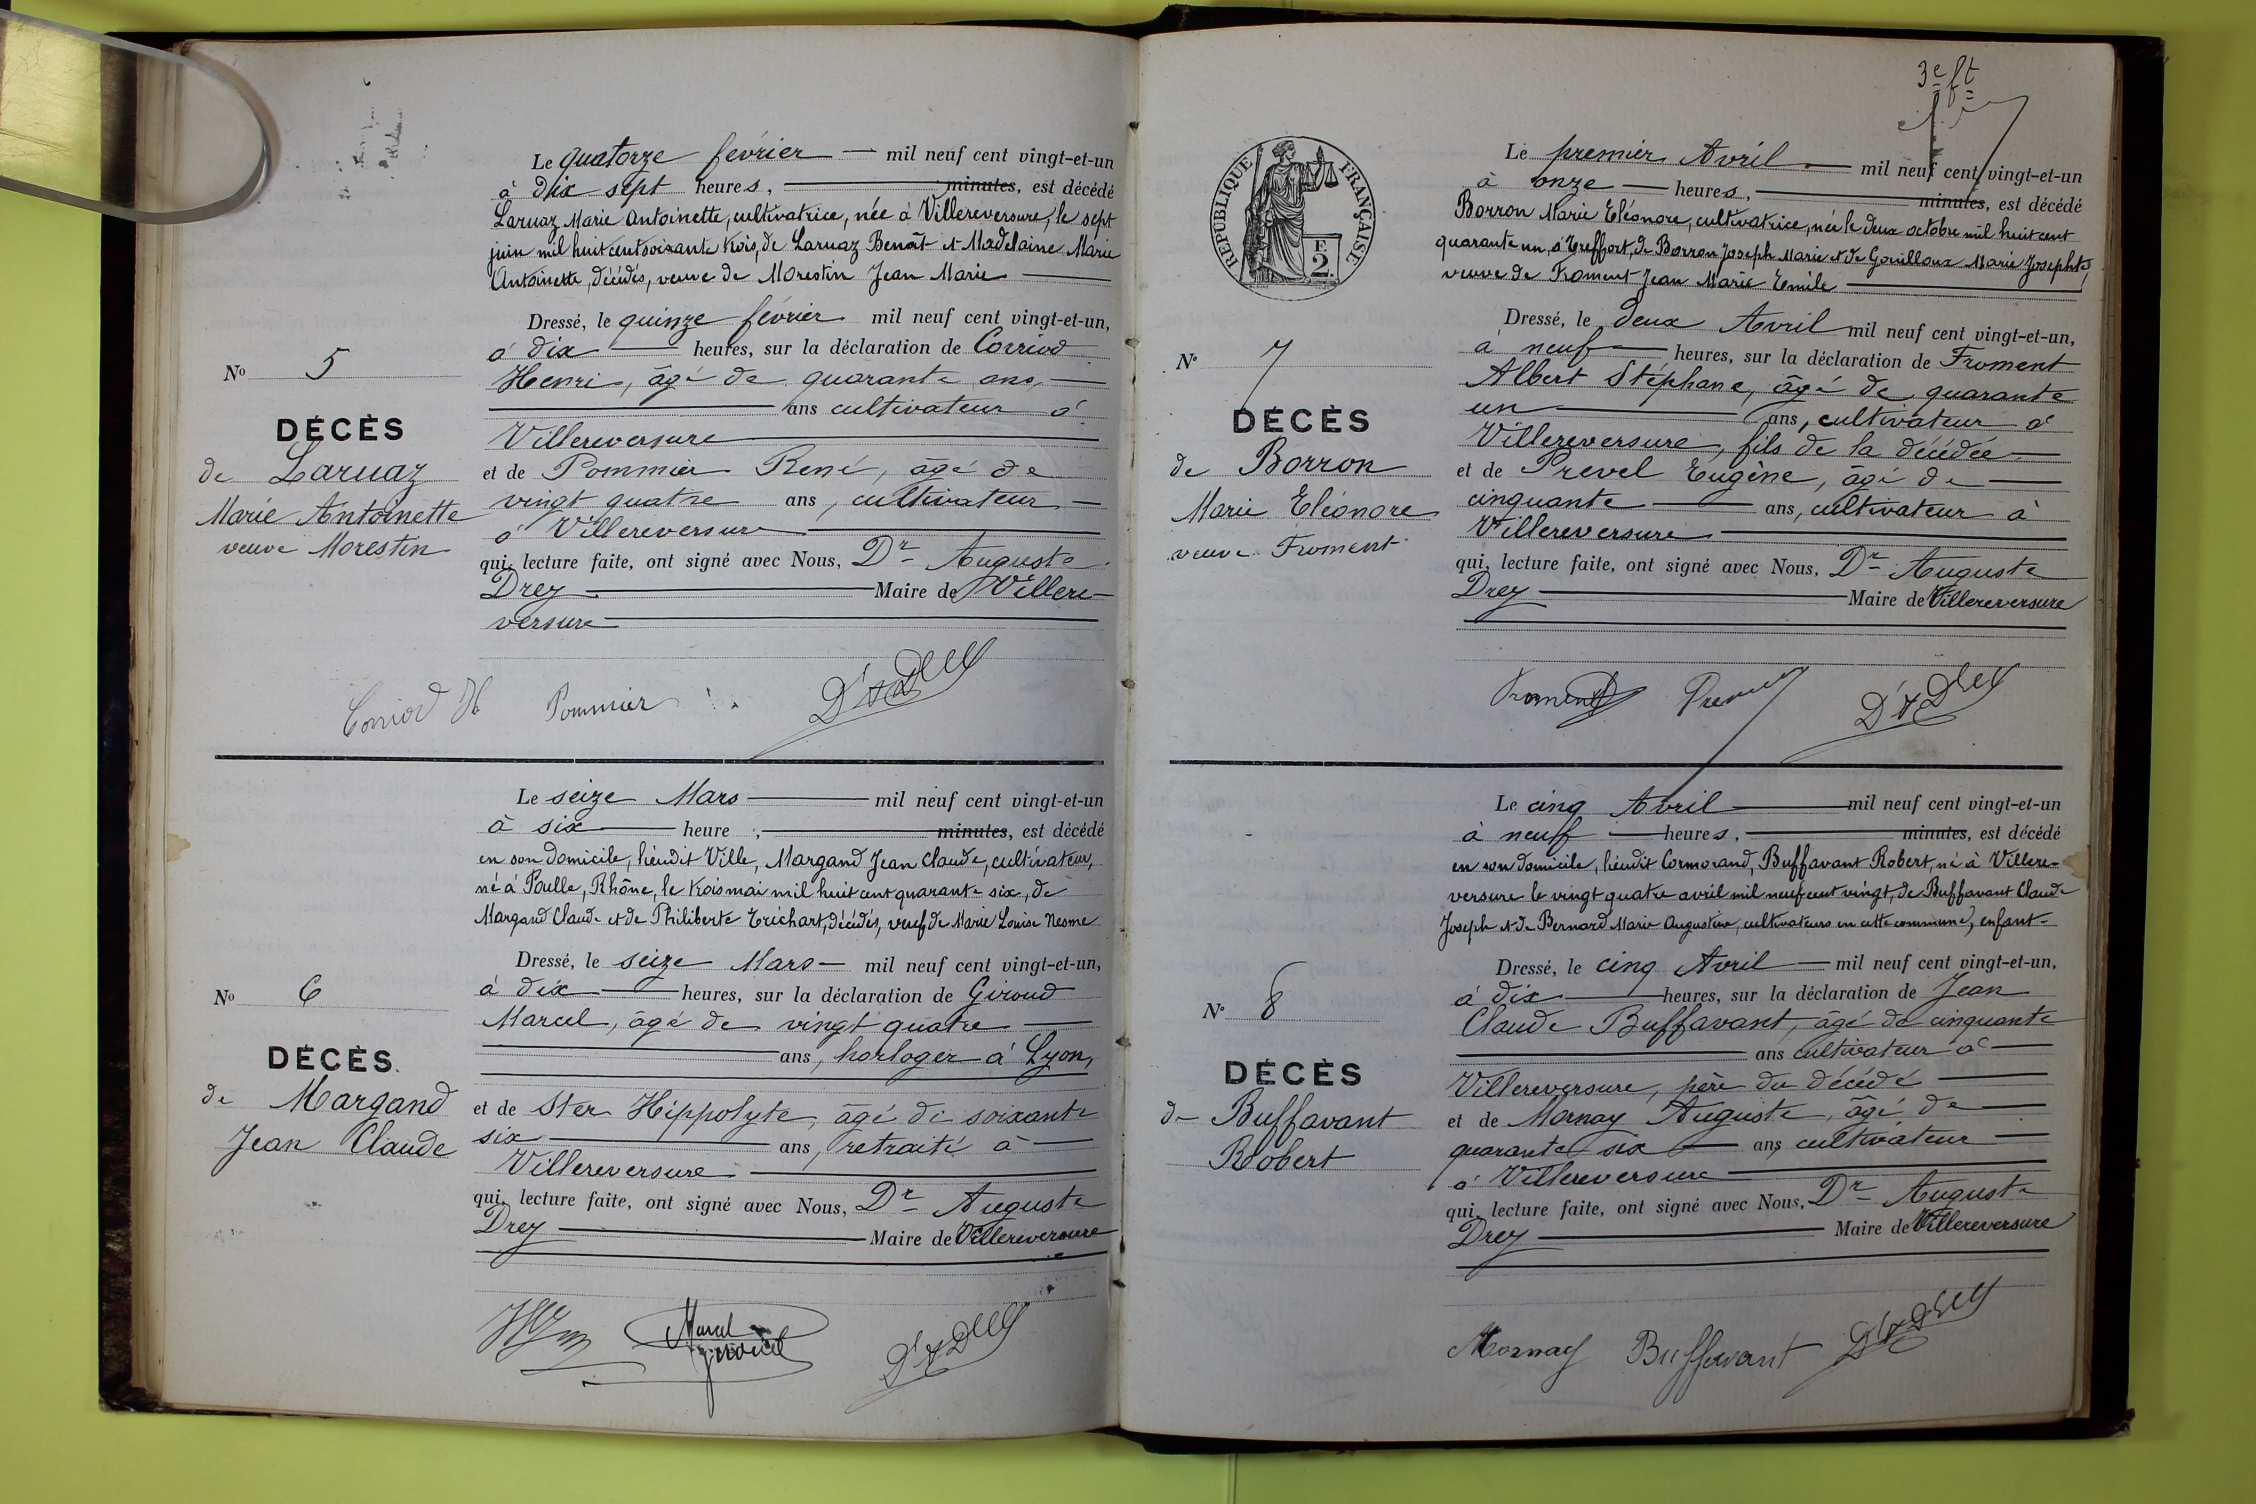 Le quatorze février — mil neuf cent vingt-et-un
à dix sept heures, minutes, est décédé
Laruaz Marie Antoinette, cultivatrice, née à Villereversure, le sept
juin mil huit cent soixante trois, de Laruaz Benoît et Madelaine Marie
Antoinette, décédés, veuve de Morestin Jean Marie
Dressé, le quinze février mil neuf cent vingt-et-un,
à dix heures, sur la déclaration de Corriod
Henri, âgé de quarante ans,
ans cultivateur à
Villereversure
et de Pommier René, âgé de
vingt quatre ans, cultivateur
à Villereversure
qui, lecture faite, ont signé avec Nous, Dr Auguste
Drey Maire de Villere-
versure
No 5
DÉCÈS
de Laruaz
Marie Antoinette
veuve Morestin
Corriod H Pommier
Le seize Mars mil neuf cent vingt-et-un
à six heure , minutes, est décédé
en son domicile, lieudit Ville, Margand Jean Claude, cultivateur,
né à Poulle, Rhône, le trois mai mil huit cent quarante six, de
Margand Claude et de Philiberte Trichart, décédés, veuf de Marie Louise Nesme
Dressé, le seize Mars mil neuf cent vingt-et-un,
à dix heures, sur la déclaration de Giroud
Marcel, âgé de vingt quatre
ans, horloger à Lyon,
et de Ster Hippolyte, âgé de soixante
six ans, retraité à
Villereversure
qui, lecture faite, ont signé avec Nous, Dr Auguste
Drey Maire de Villereversure
No 6
DÉCÈS
de Margand
Jean Claude
Marcel Giroud
3e ft
RÉPUBLIQUE FRANÇAISE
E
2
Le premier Avril mil neuf cent vingt-et-un
à onze heures, minutes, est décédé
Borron Marie Eléonore, cultivatrice, née le deux octobre mil huit cent
quarante un, à Treffort, de Borron Joseph Marie et de Gouilloux Marie Josephte,
veuve de Froment Jean Marie Emile
Dressé, le deux Avril mil neuf cent vingt-et-un,
à neuf heures, sur la déclaration de Froment
Albert Stéphane, âgé de quarante
un ans, cultivateur à
Villereversure, fils de la décédée
et de Prevel Eugène, âgé de
cinquante ans, cultivateur à
Villereversure
qui, lecture faite, ont signé avec Nous, Dr Auguste
Drey Maire de Villereversure
No 7
DÉCÈS
de Borron
Marie Eléonore
veuve Froment
Froment
Le cinq Avril mil neuf cent vingt-et-un
à neuf heures, minutes, est décédé
en son domicile, lieudit Cormorand, Buffavant Robert, né à Villere-
versure le vingt quatre avril mil neuf cent vingt, de Buffavant Claude
Joseph et de Bernard Marie Augustine, cultivateurs en cette commune, enfant
Dressé, le cinq Avril mil neuf cent vingt-et-un,
à dix heures, sur la déclaration de Jean
Claude Buffavant, âgé de cinquante
ans cultivateur à
Villereversure, père du décédé
et de Mornay Auguste, âgé de
quarante six ans cultivateur
à Villereversure
qui, lecture faite, ont signé avec Nous, Dr Auguste
Drey Maire de Villereversure
No 8
DÉCÈS
de Buffavant
Robert
Mornay Buffavant